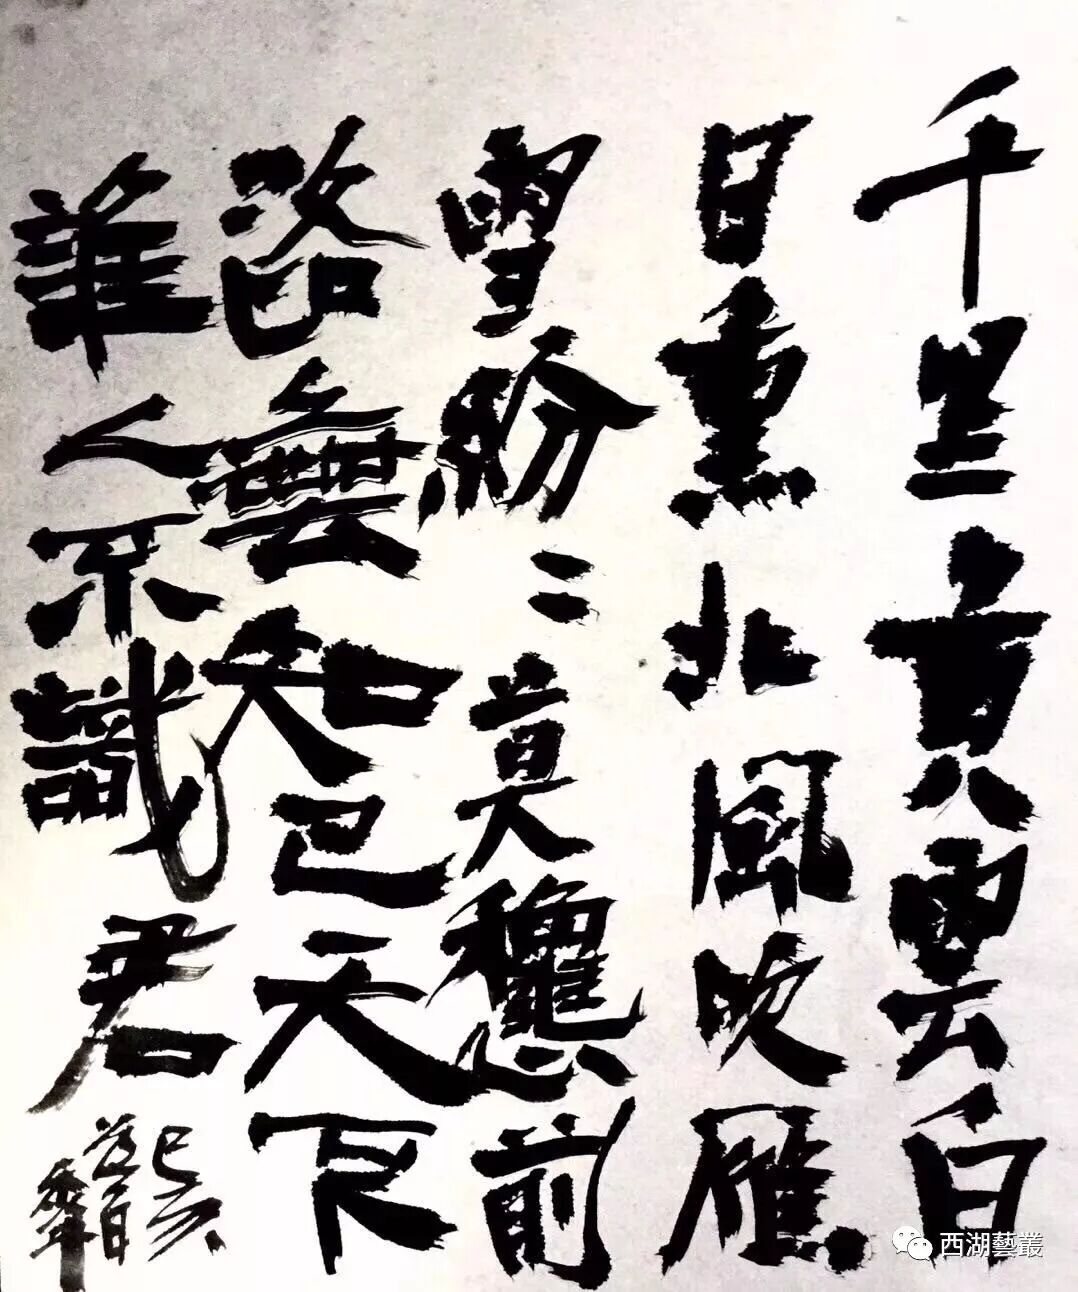 千里黃雲白
日熏北風吹雁
雪紛二莫愁前
路無知己天下
誰人不識君
己亥
西湖藝叢